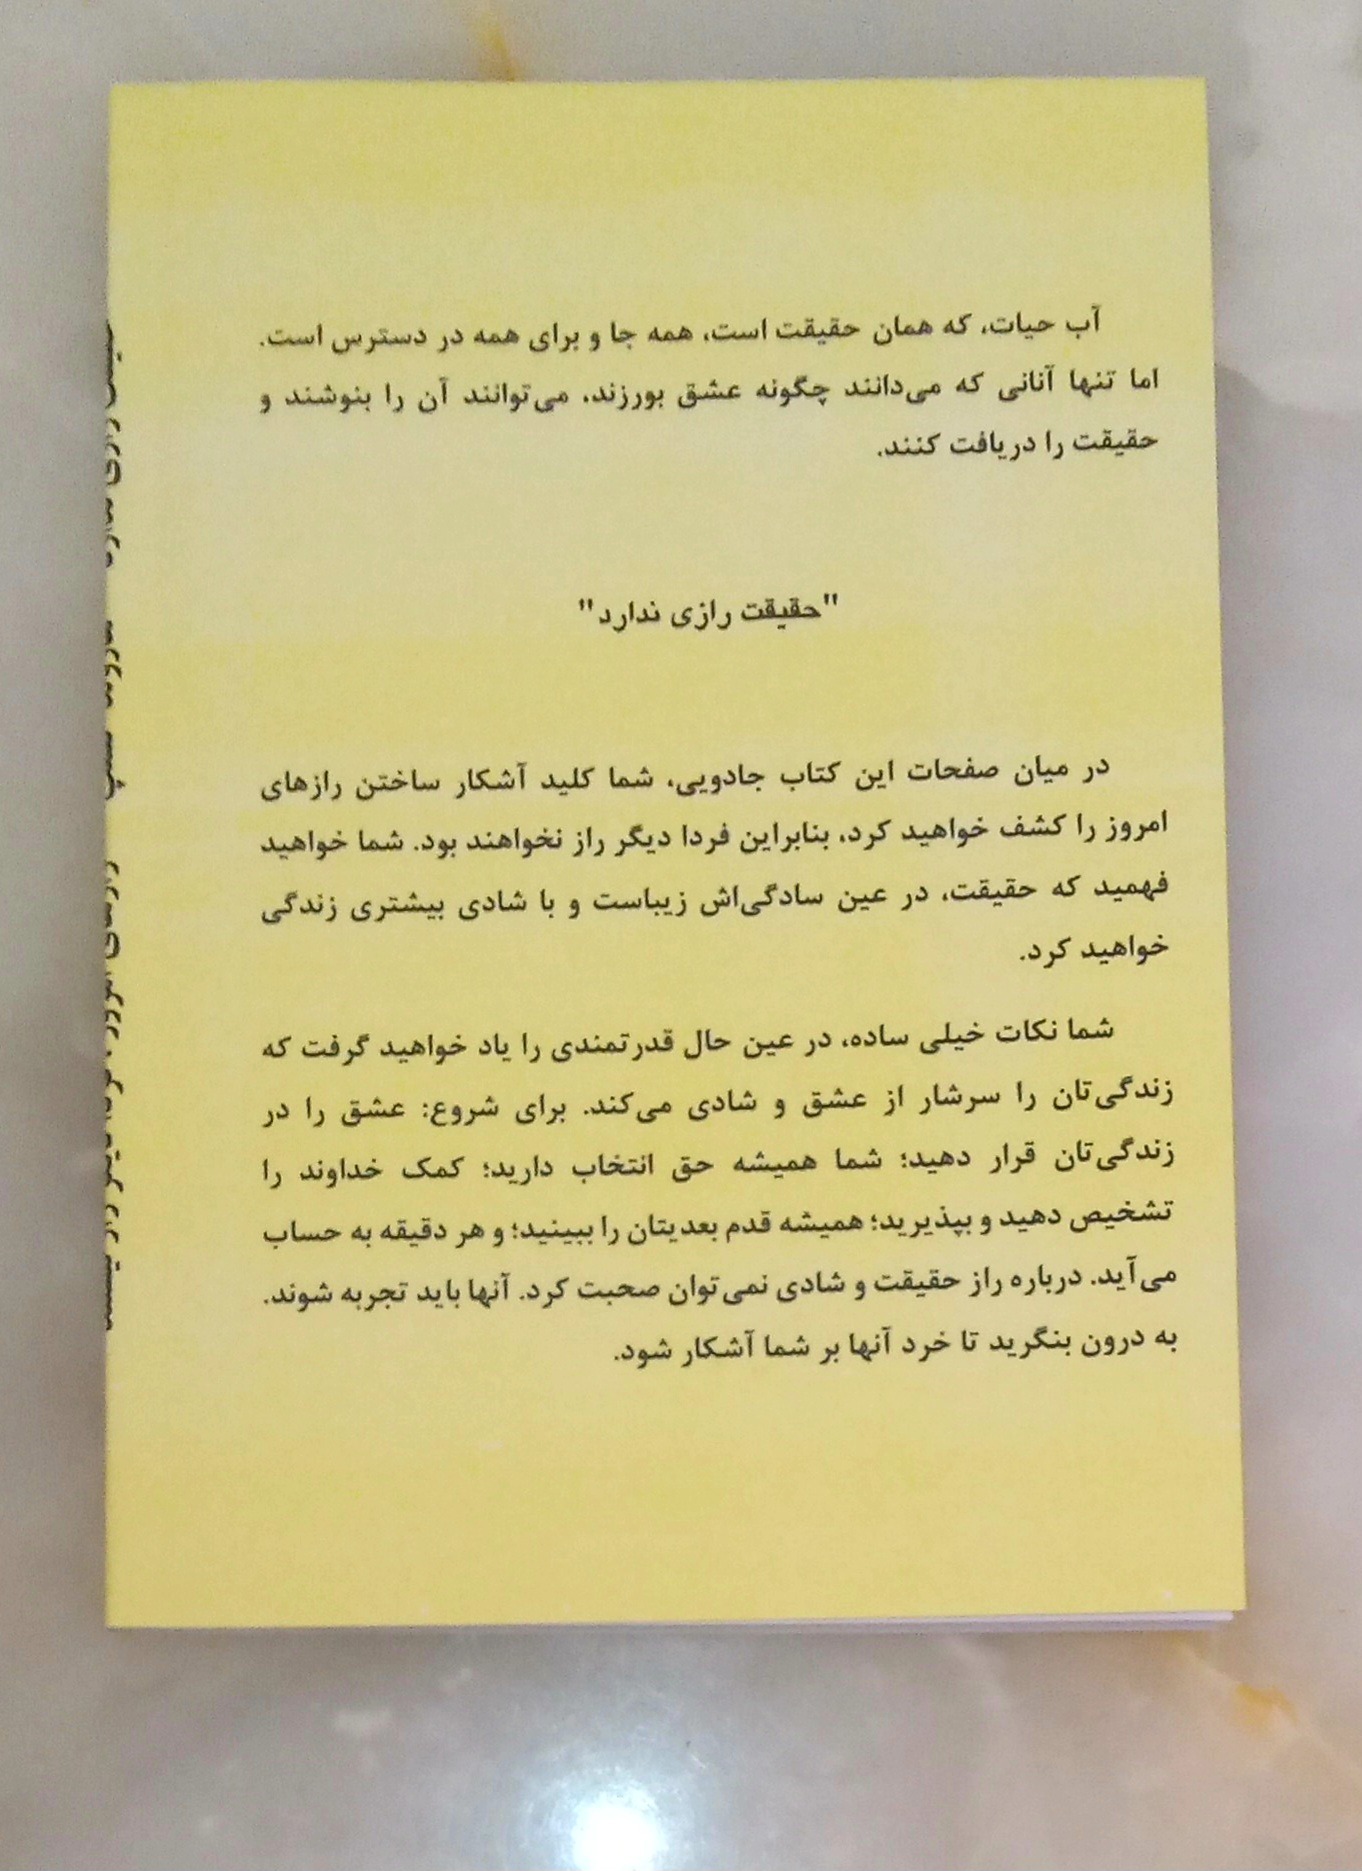 آب حیات، که همان حقیقت است، همه جا و برای همه در دسترس است.
اما تنها آنانی که می‌دانند چگونه عشق بورزند، می‌توانند آن را بنوشند و
حقیقت را دریافت کنند.
"حقیقت رازی ندارد"
در میان صفحات این کتاب جادویی، شما کلید آشکار ساختن رازهای
امروز را کشف خواهید کرد، بنابراین فردا دیگر راز نخواهند بود. شما خواهید
فهمید که حقیقت، در عین سادگی‌اش زیباست و با شادی بیشتری زندگی
خواهید کرد.
شما نکات خیلی ساده، در عین حال قدرتمندی را یاد خواهید گرفت که
زندگی‌تان را سرشار از عشق و شادی می‌کند. برای شروع: عشق را در
زندگی‌تان قرار دهید؛ شما همیشه حق انتخاب دارید؛ کمک خداوند را
تشخیص دهید و بپذیرید؛ همیشه قدم بعدیتان را ببینید؛ و هر دقیقه به حساب
می‌آید. درباره راز حقیقت و شادی نمی‌توان صحبت کرد. آنها باید تجربه شوند.
به درون بنگرید تا خرد آنها بر شما آشکار شود.